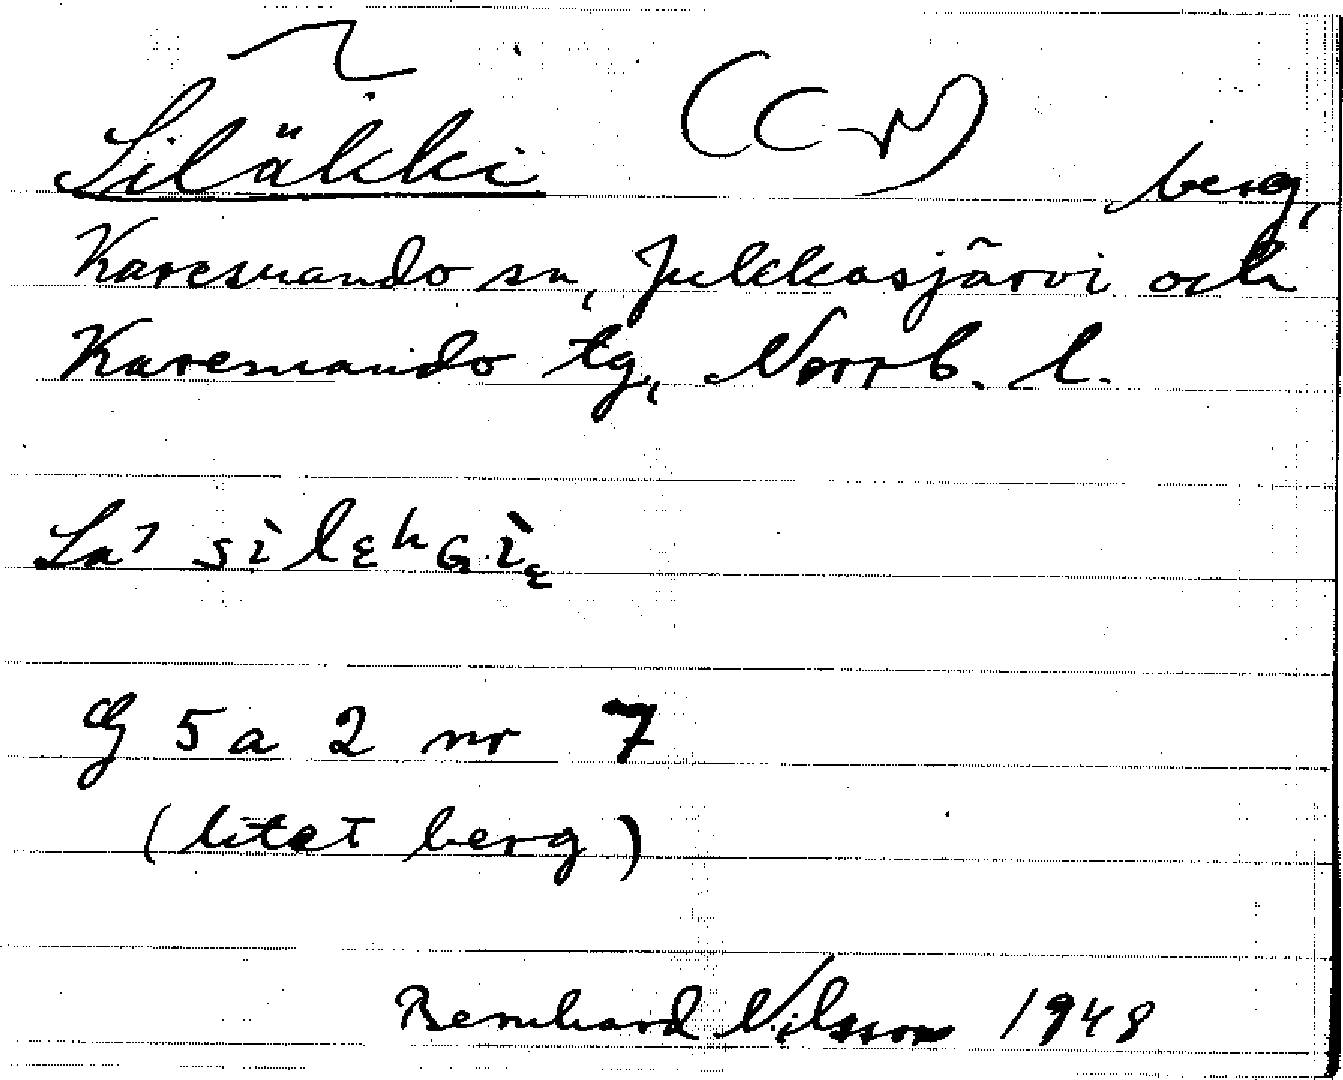 Siläkki berg,
Karesuando sn, Jukkasjärvi och
Karesuando tg, Norrb. l.
La'
G 5 a 2 nr 7
(litet berg)
Bernhard Nilsson 1948